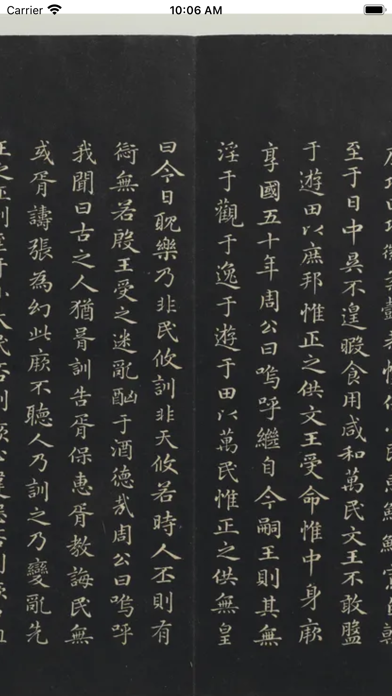 Carrier 10:06 AM
至于日中昃不遑暇食用咸和萬民文王不敢盤
于遊田以庶邦惟正之供文王受命惟中身厥
享國五十年周公曰嗚呼繼自今嗣王則其無
淫于觀于逸于遊于田以萬民惟正之供無皇
曰今日耽樂乃非民攸訓非天攸若時人丕則有
愆無若殷王受之迷亂酗于酒德哉周公曰嗚呼
我聞曰古之人猶胥訓告胥保惠胥教誨民無
或胥譸張為幻此厥不聽人乃訓之乃變亂先